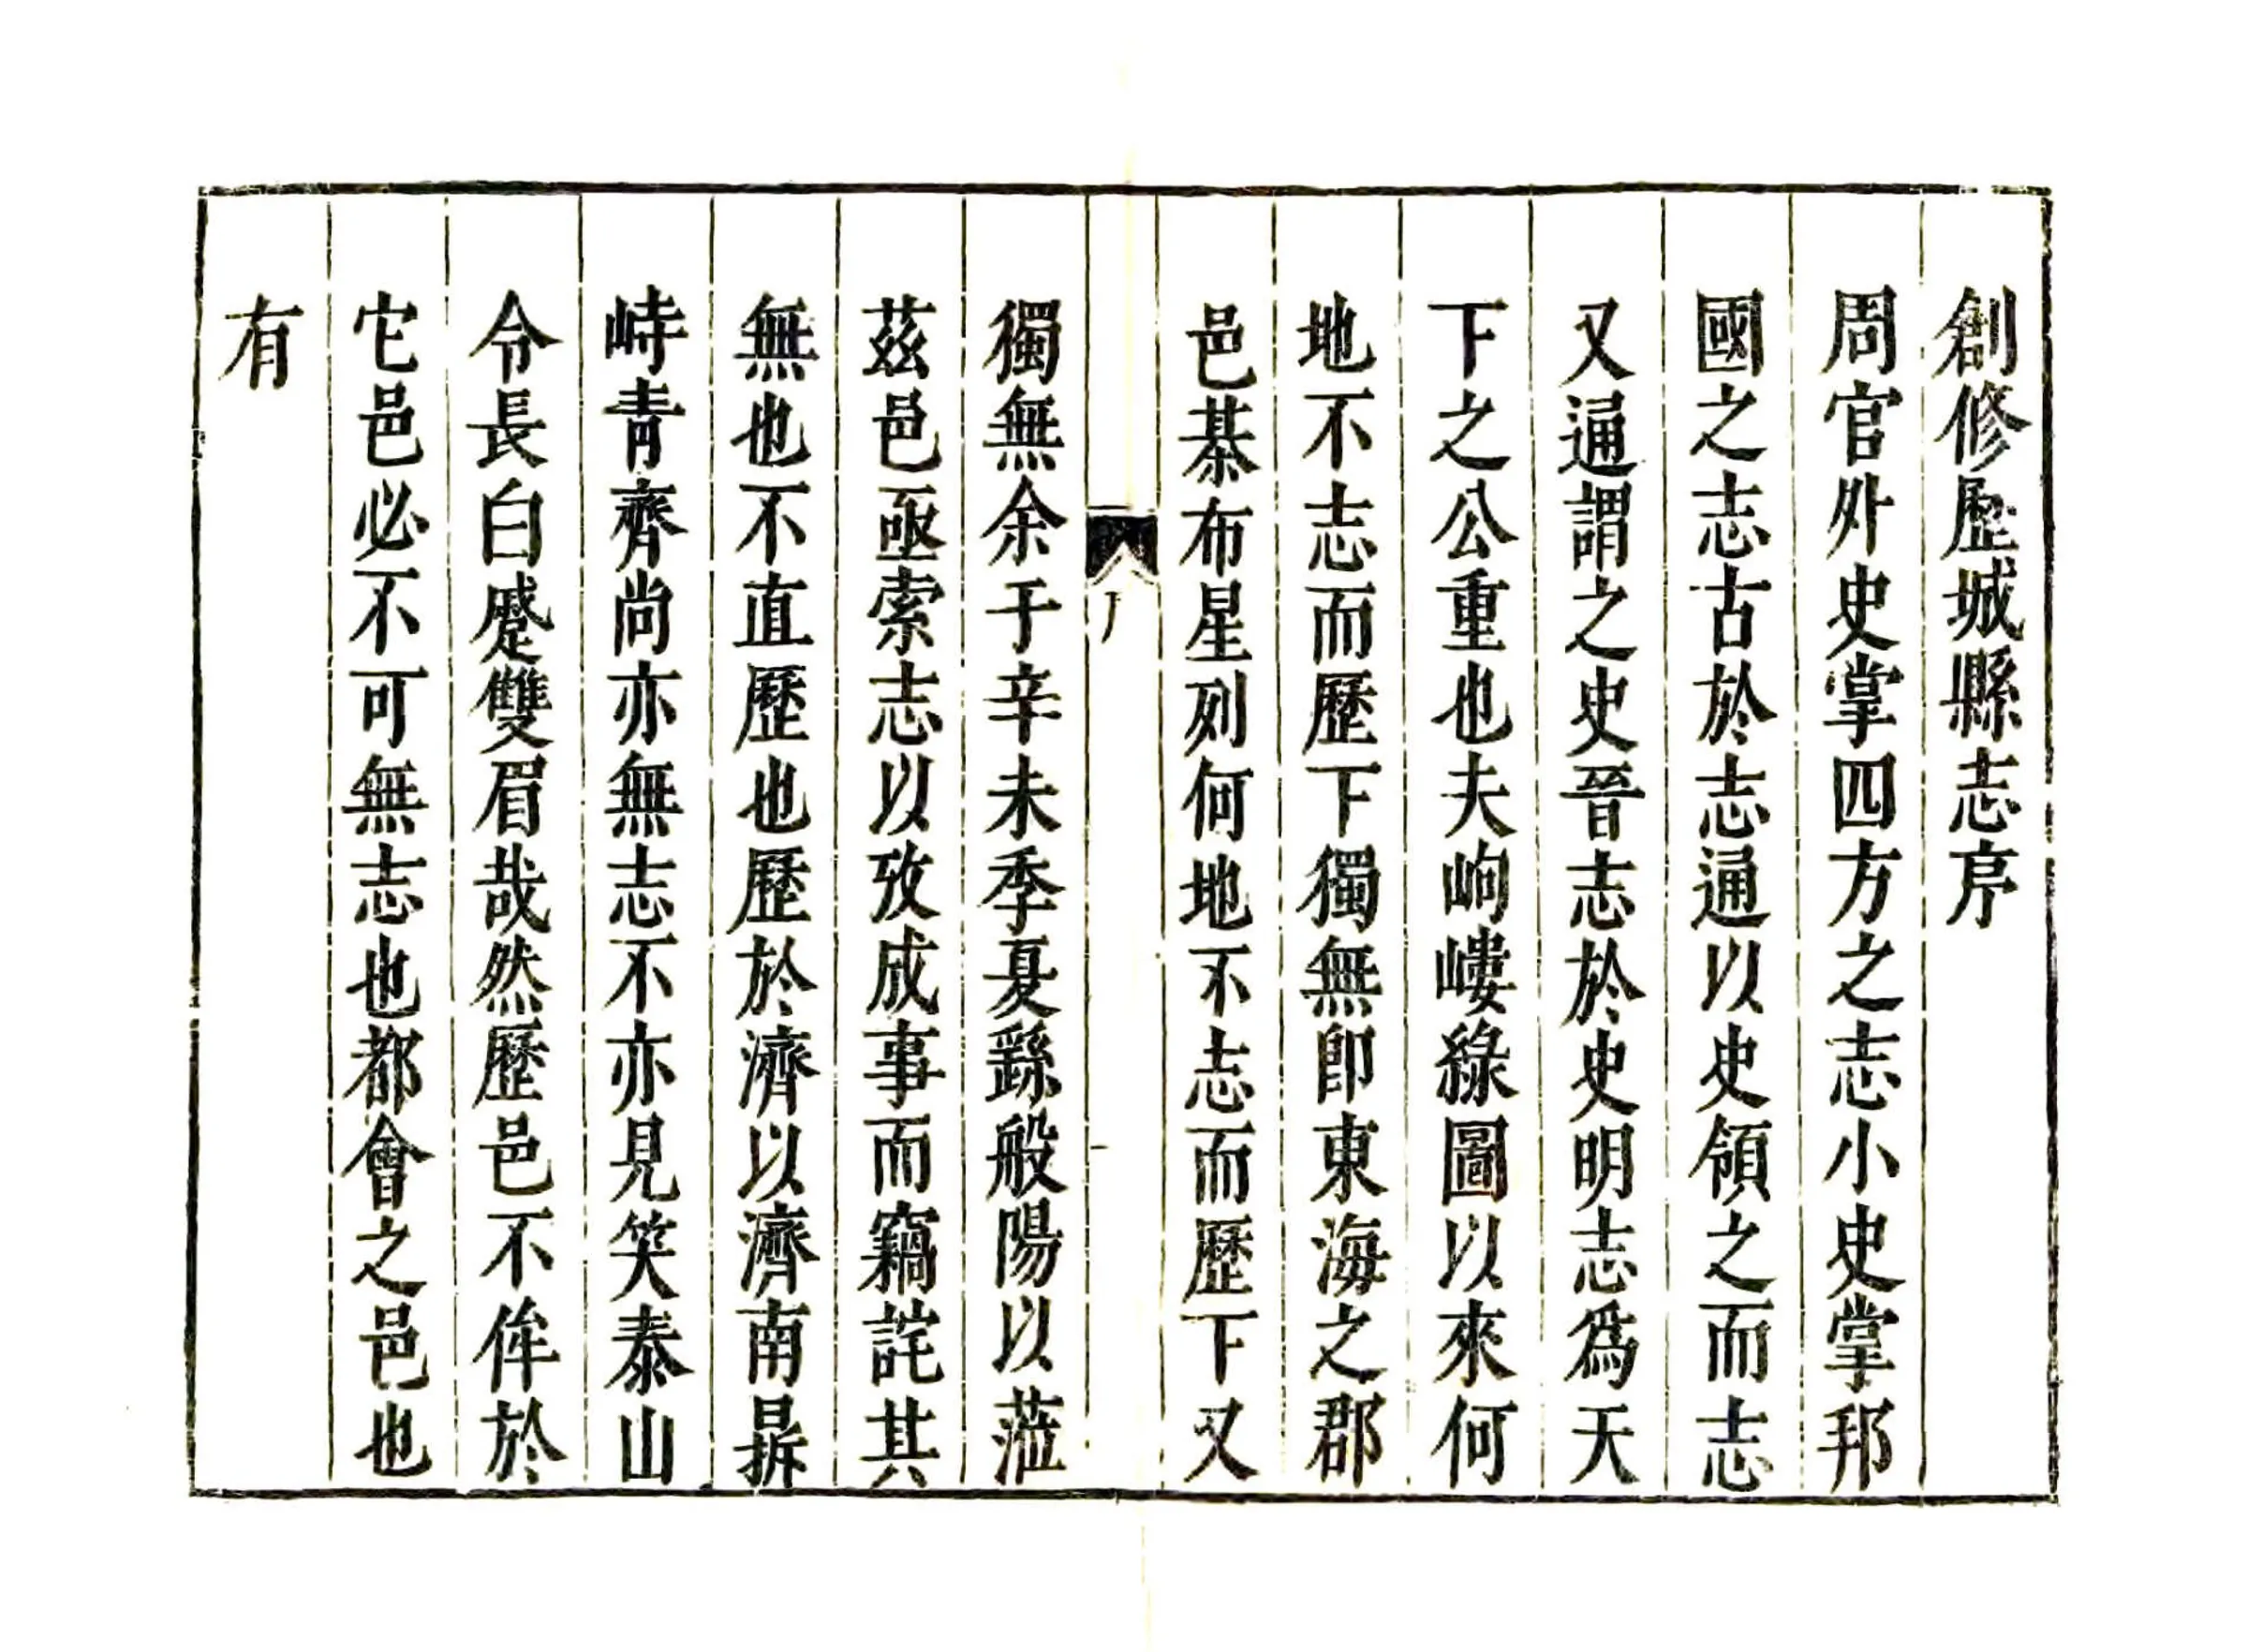 創修歷城縣志序
周官外史掌四方之志小史掌邦
國之志古於志通以史領之而志
又通謂之史晉志於史明志為天
下之公重也夫岣嶁綠圖以來何
地不志而歷下獨無卽東海之郡
邑棊布星列何地不志而歷下又
獨無余于辛未季夏繇般陽以蒞
茲邑亟索志以攷成事而竊詫其
無也不直歷也歷於濟以濟南㬥
峙青齊尚亦無志不亦見笑泰山
令長白蹙雙眉哉然歷邑不侔於
它邑必不可無志也都會之邑也
有